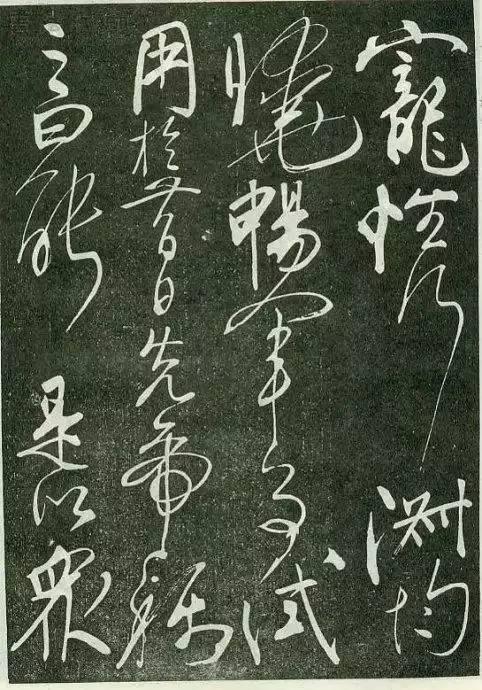 寵性行淑均
曉暢軍事試
用於昔日先帝稱
之曰能是以衆